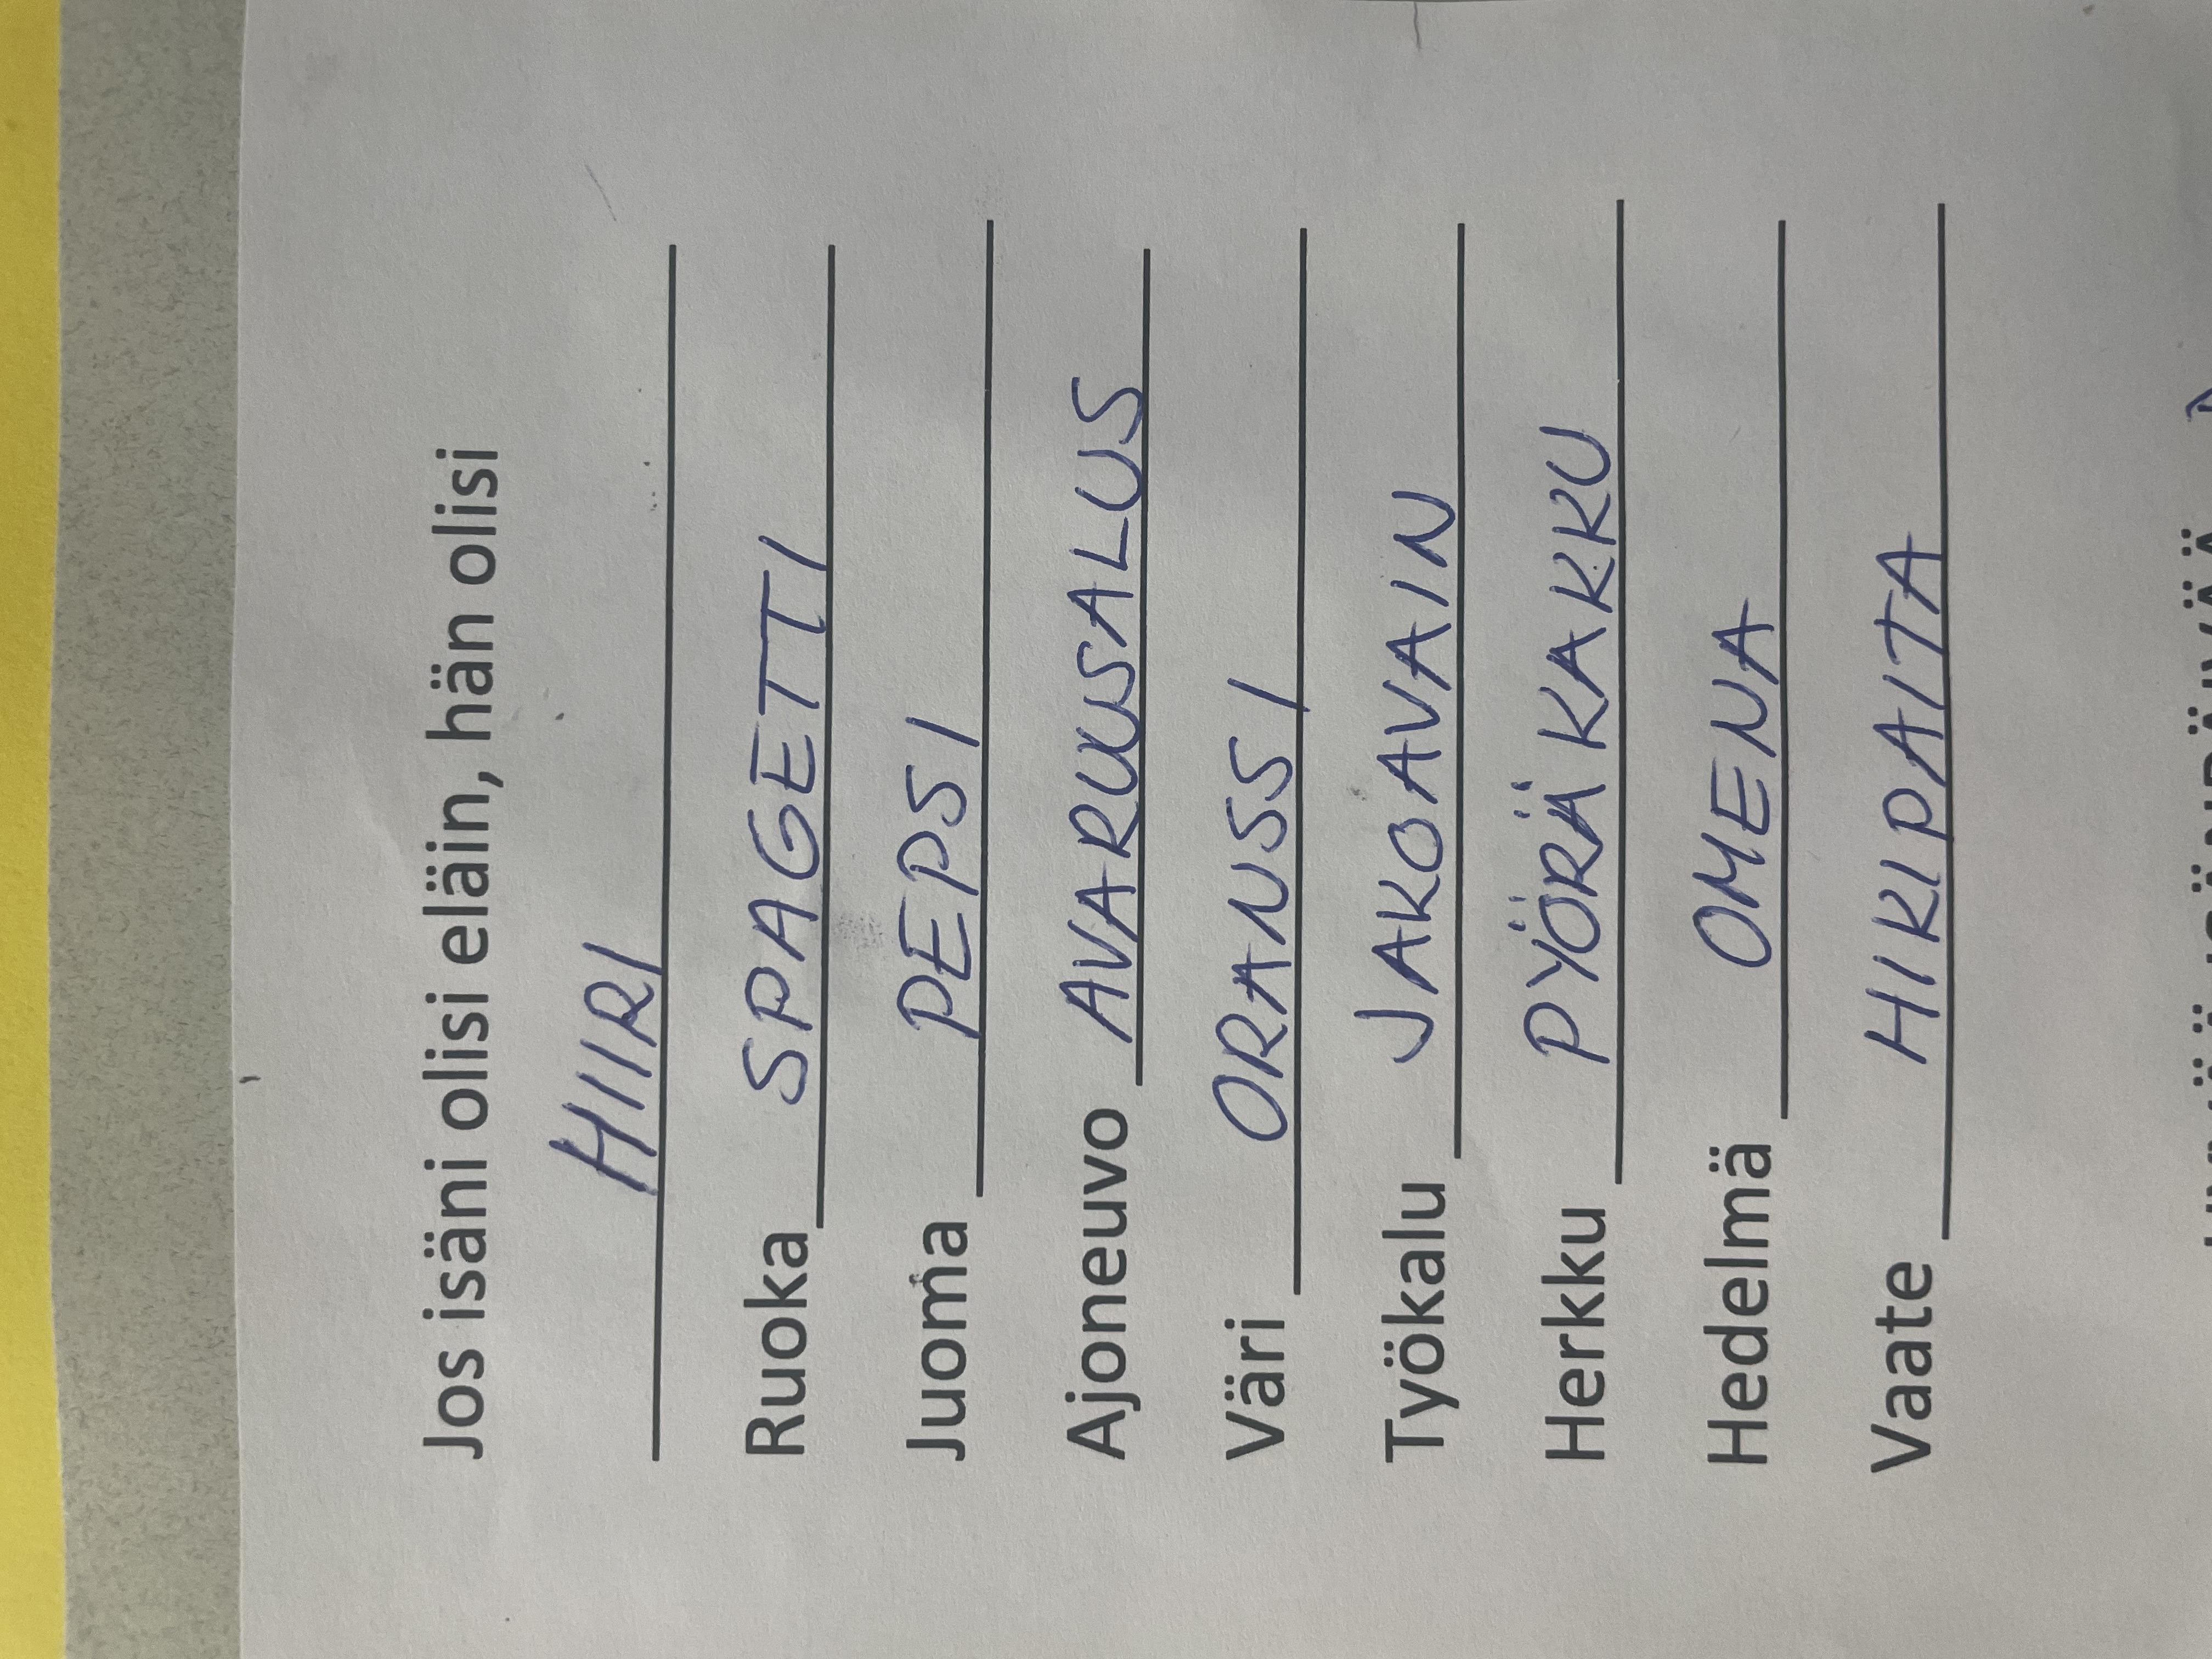 Jos isäni olisi eläin, hän olisi
HIIRI
Ruoka SPAGETTI
Juoma PEPSI
Ajoneuvo AVARUUSALUS
Väri ORANSSI
Työkalu JAKOAVAIN
Herkku PYÖRÄKAKKU
Hedelmä OMENA
Vaate HIKIPAITA